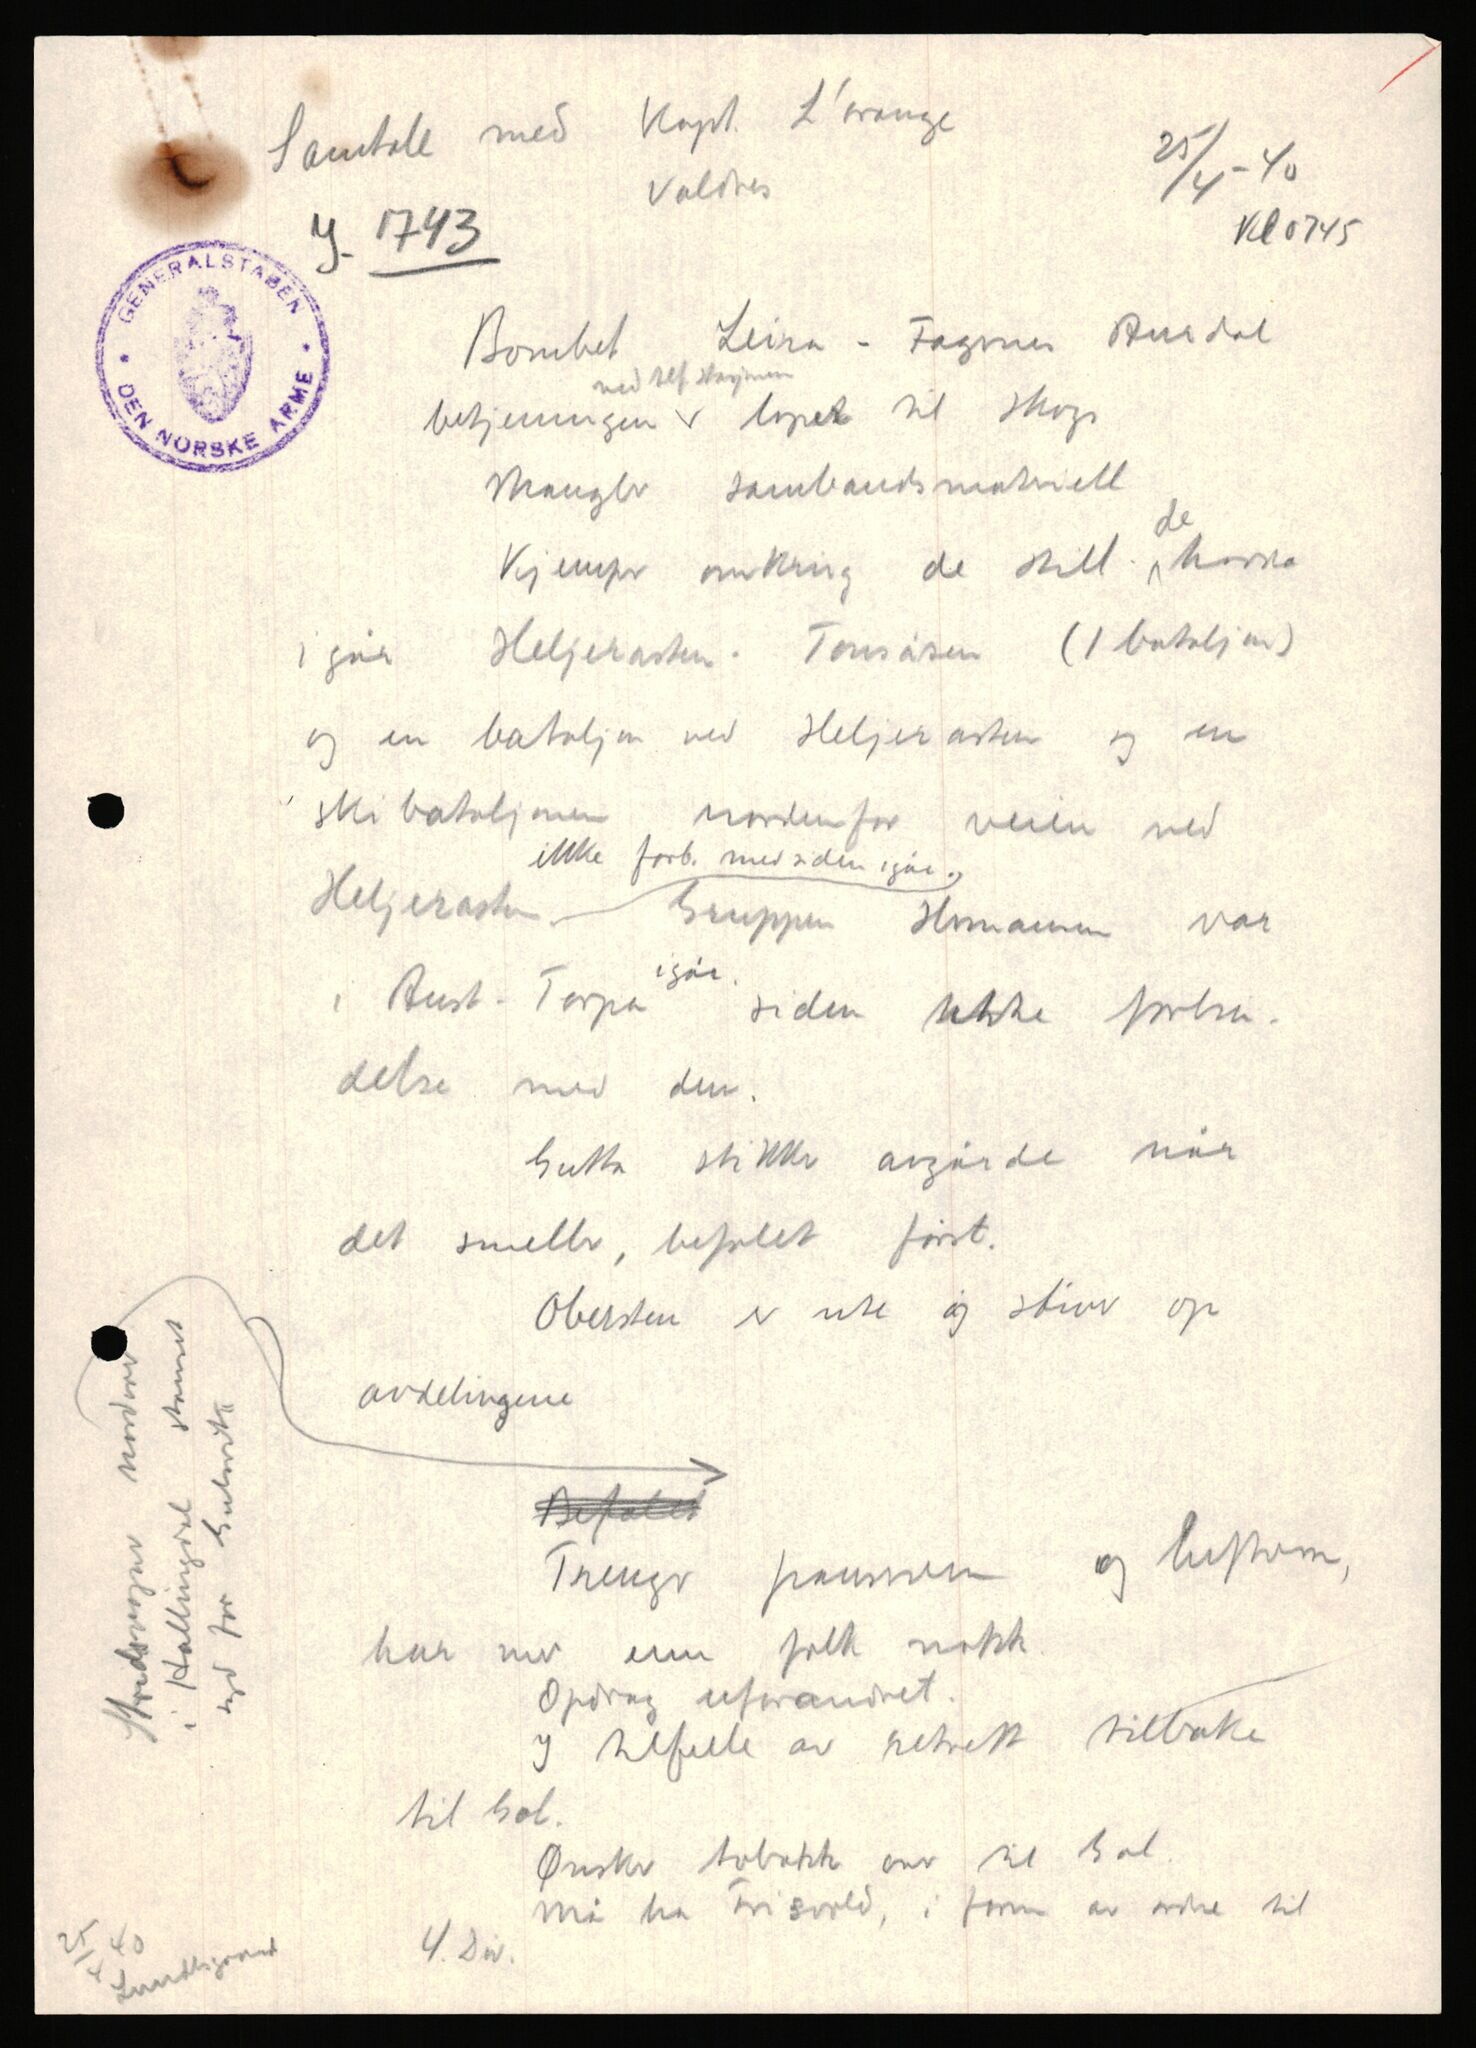 Samtale med Kapt. L'orange
Valdres
25/4-40
Kl 0745
J. 1743
GENERALSTABEN
DEN NORSKE ARME
Bombet Leira - Fagernes Aurdal
ved tlf stasjonen
betjeningen v løpet til skogs
Mangler sambandsmateriell
Kjemper omkring de still. de
hadde
igår Heljerasten. Tonsåsen (1 bataljon)
og en bataljon ved Heljerasten og en
skibataljonen nordenfor veien ved
ikke forb. med siden igår.
Heljerasten Gruppen Homannen var
i Aust-Torpa igår. siden ikke forbin-
delse med den.
Gutta stikker avgårde når
det smeller, befalet først.
Obersten er ute og stiver op
avdelingene
Befalet
Trenger panservern og luftvern,
har mer enn folk nokk.
Opdrag uforandret.
I tilfelle av retrett tilbake
til Gol.
Ønsker tobakk over til Gol.
Må ha Frisvold, i form av ordre til
4. Div.
Stridsvogner nordover
i Hallingdal stanset
syd for Gulsvik
25/4 40